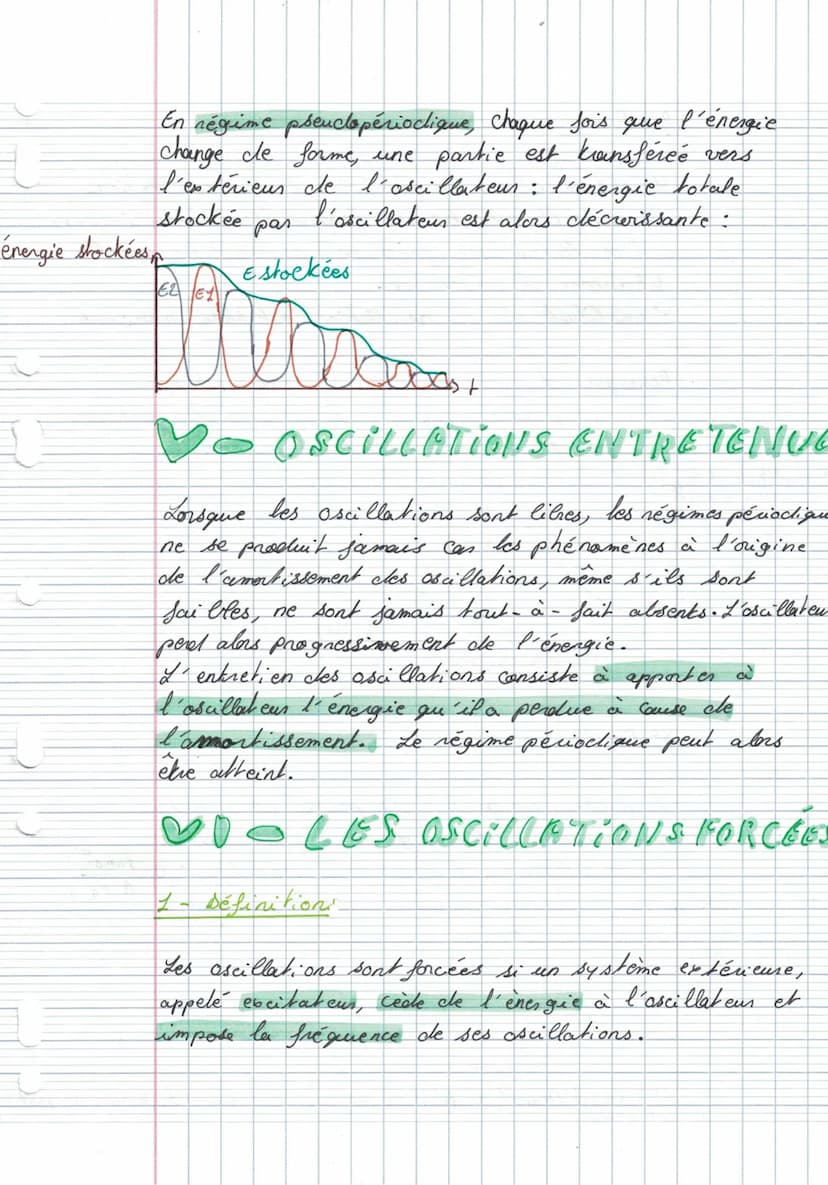 En régime pseudopériodique, chaque fois que l'énergie
change de forme, une partie est transféreé vers
l'extérieur de l'oscillateur : l'énergie totale
stockée par l'oscillateur est alors décroissante :
énergie stockées
E stockées
E2 E1
t
V - OSCILLATIONS ENTRETENUE
Lorsque les oscillations sont libres, les régimes périodique
ne se produit jamais car les phénomènes à l'origine
de l'amortissement des oscillations, même s'ils sont
faibles, ne sont jamais tout-à-fait absents. L'oscillateur
perd alors progressivement de l'énergie.
L'entretien des oscillations consiste à apporter à
l'oscillateur l'énergie qu'il a perdue à cause de
l'amortissement. Le régime périodique peut alors
être atteint.
VI - LES OSCILLATIONS FORCÉES
1 - Définition:
Les oscillations sont forcées si un système extérieure,
appelé excitateur, cède de l'ènergie à l'oscillateur et
impose la fréquence de ses oscillations.